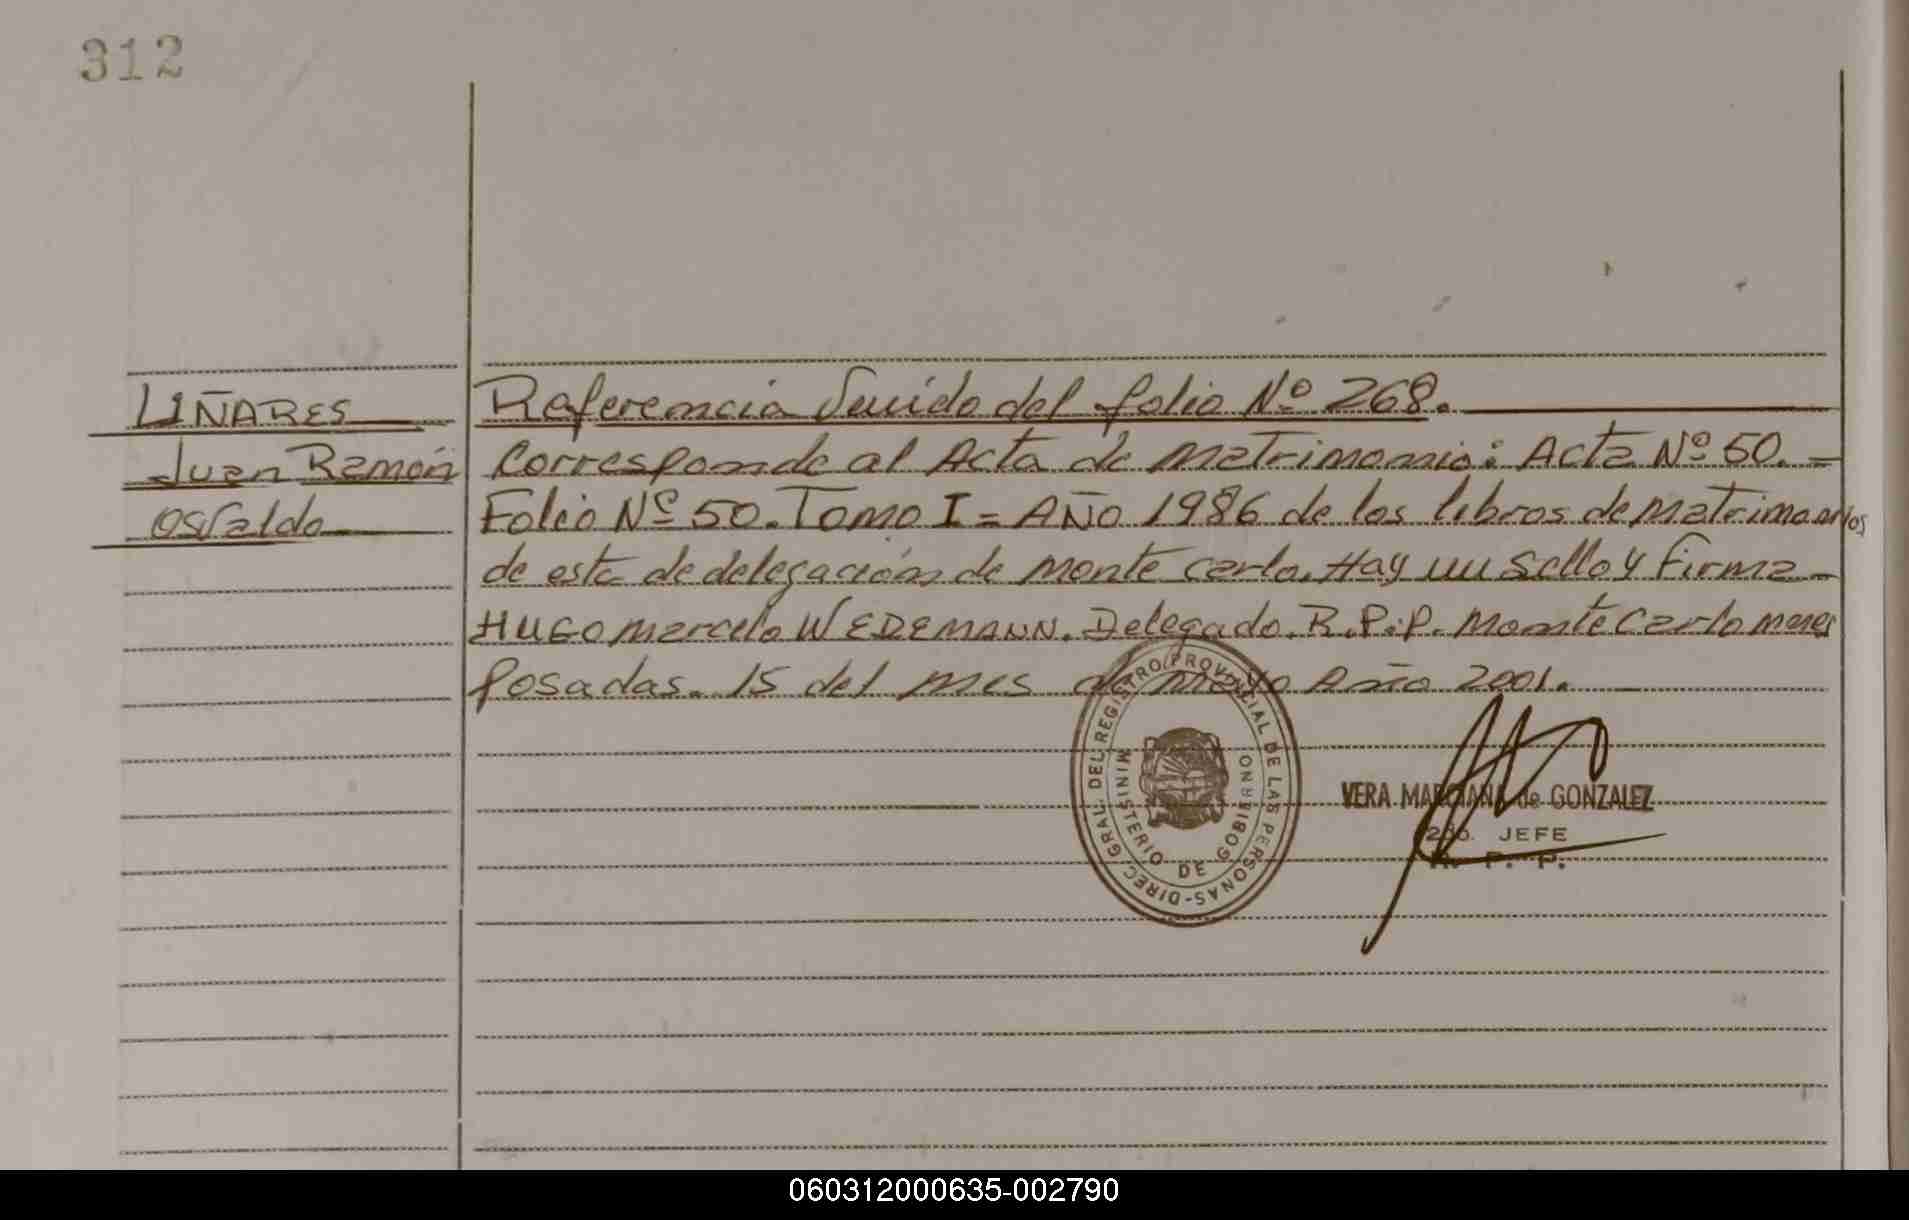 312
LIÑARES
Juan Ramón
Osvaldo
Referencia del folio Nº 268.
Corresponde al Acta de Matrimonio: Acta Nº 50.-
Folio Nº 50. Tomo I = AÑO 1986 de los libros de Matrimonios
de esta de delegación de Monte Carlo. Hay un Sello y Firma-
HUGO Marcelo WEDEMANN. Delegado. R.P.P. Monte Carlo
Posadas. 15 del mes de Mayo Año 2001.
DIREC. GRAL. DEL REGISTRO PROVINCIAL DE LAS PERSONAS-
MINISTERIO DE GOBIERNO
VERA MARCIANA de GONZALEZ
2do. JEFE
R. P. P.
060312000635-002790